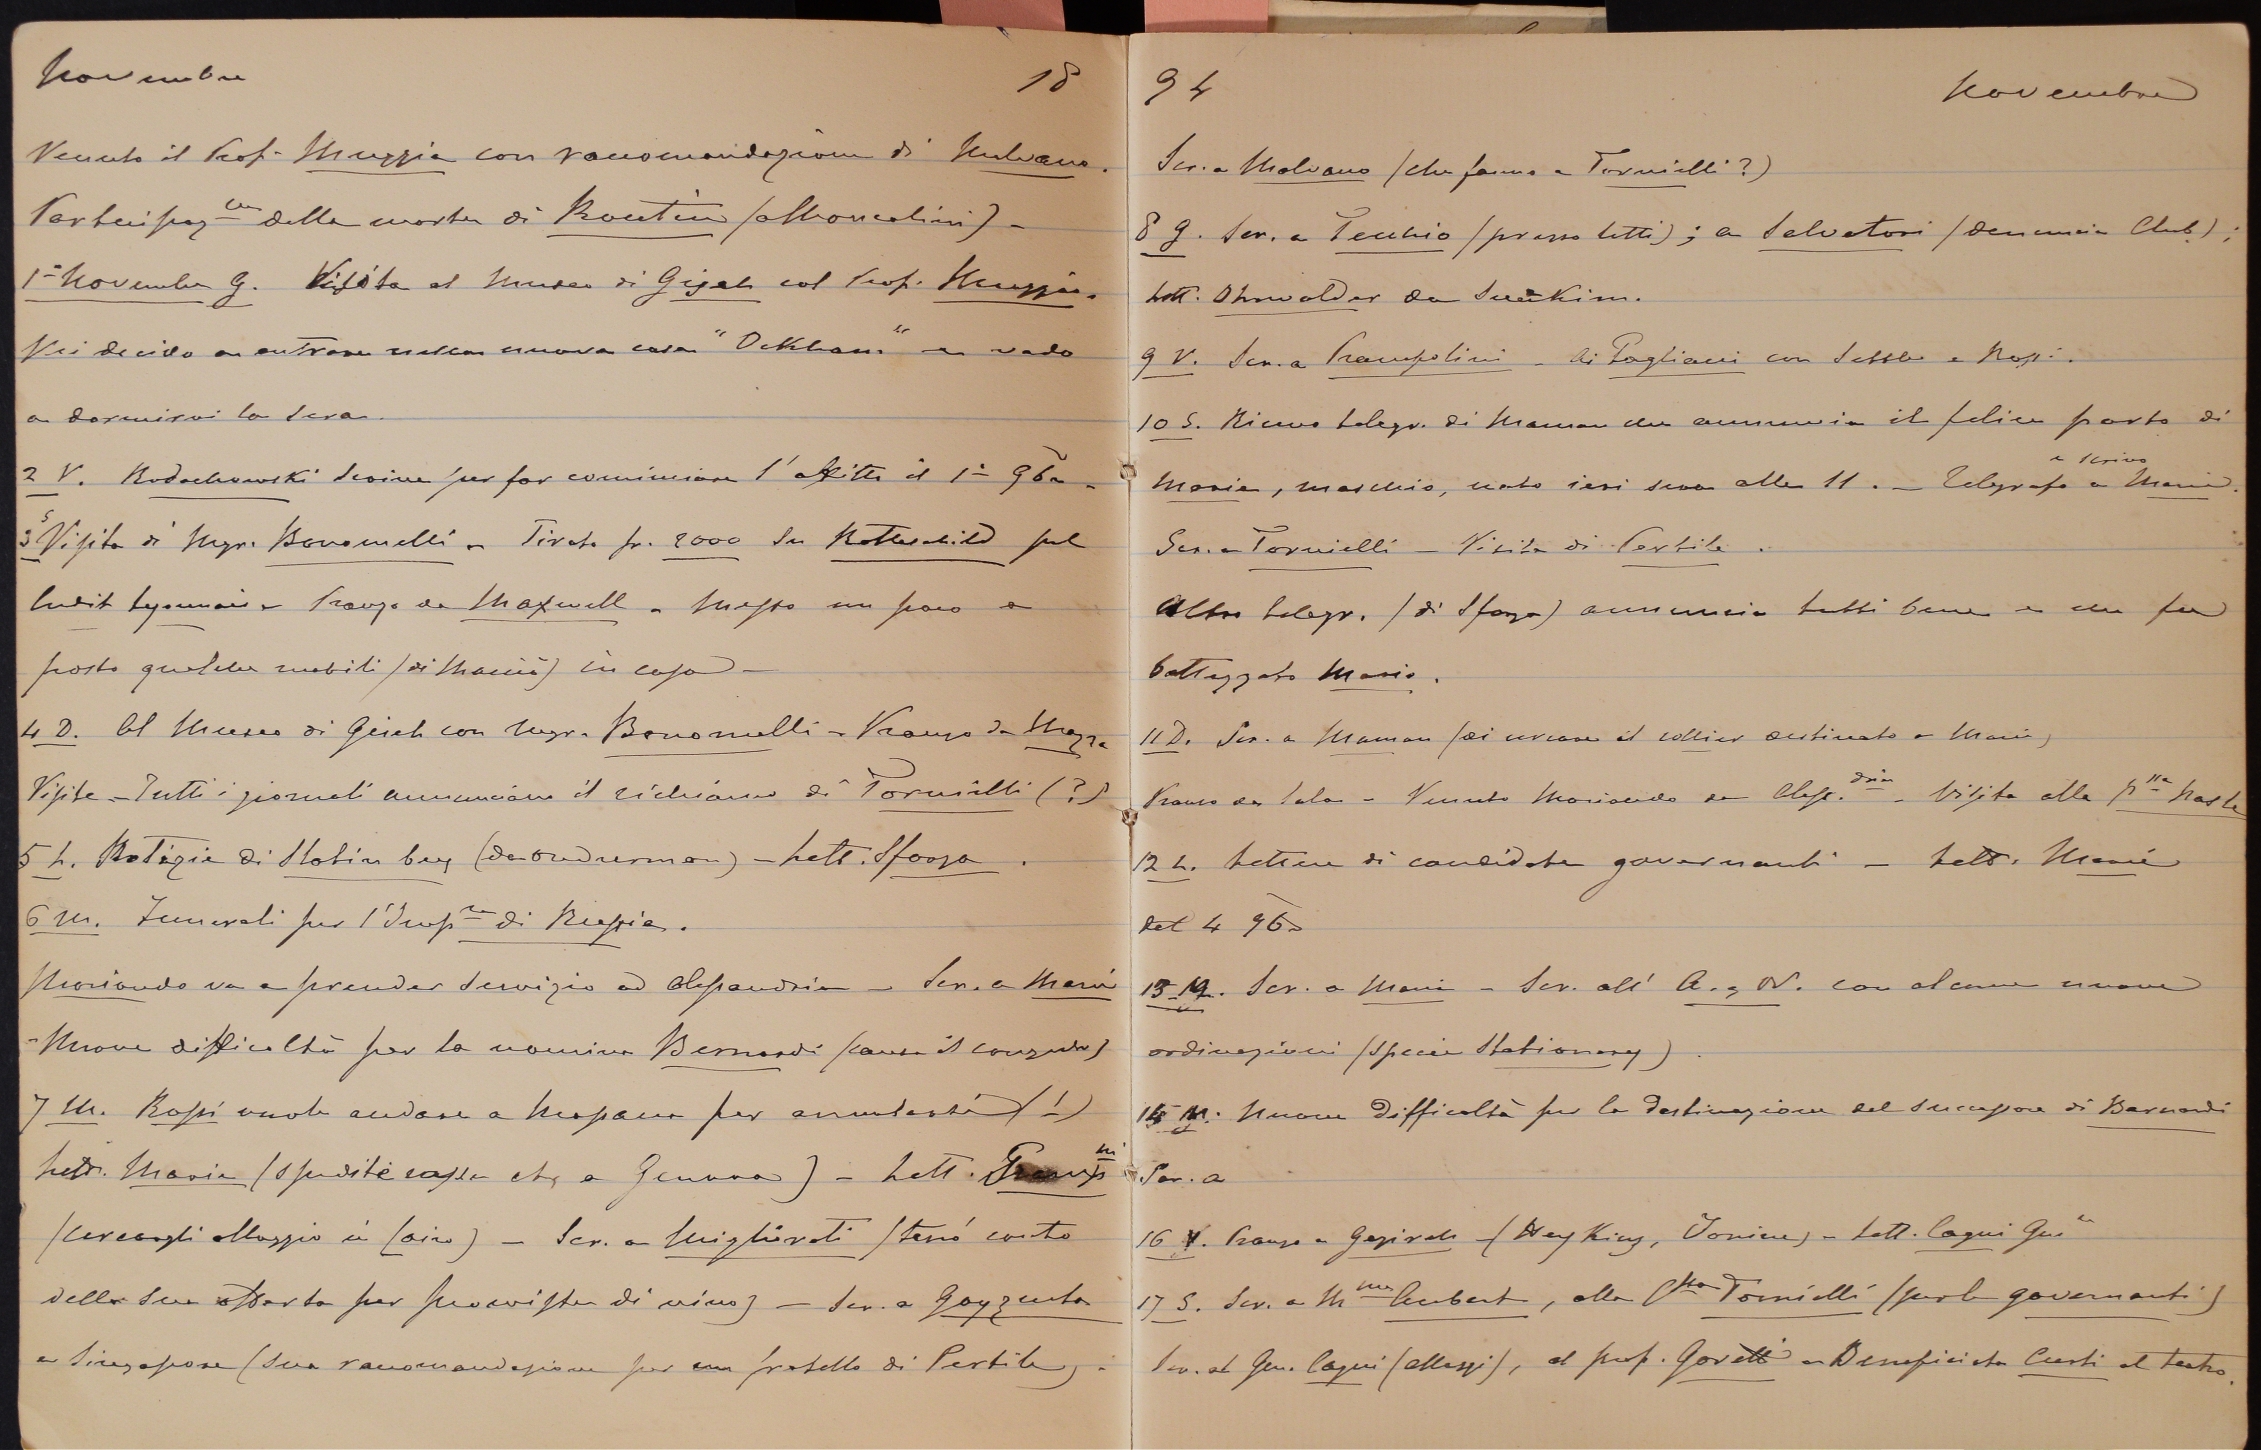 Novembre 18
Venuto il Prof. Muggia con raccomandazione di Malvano.
Partecipaz.ne della morte di Boutin (a Moncalieri) -
1° Novembre G. Visita al Museo di Gizeh col Prof. Muggia.
Poi decido a entrare nella nuova casa "Ockham" e vado
a dormirvi la sera.
2 V. Rodochowski scrive per far cominciare l'affitto il 1° 9bre.
3 S Visita di Mgr. Bonomelli - Tirato fr. 2000 su Rothschild pel
Credit Lyonnais - Pranzo da Maxwell - Messo un poco a
posto qualche mobili (di Maria) in casa -
4 D. Al Museo di Gizeh con Mgr. Bonomelli - Pranzo da
Visite - Tutti i giornali annunciano il richiamo di Tornielli (?)
5 L. Notizie di Slatin bey (da Omdurman) - Lett. Sforza.
6 M. Funerali per l'Imp.re di Russia.
Moriondo va a prender servizio ad Alessandria - Scr. a Marie
- Nuove difficoltà per la nomina Bernardi (causa il congedo)
7 M. Rossi vuole andare a Massaua per curiosità (!)
Lett. Maria (spedite casse etc, a Genova) - Lett.
(cercargli alloggio in Cairo) - Scr. a Migliorati (terrò conto
della sua offerta per provviste di vino) - Scr. a Gayzenta
a Singapore (sua raccomandazione per un fratello di Pertile) -
94 Novembre
Scr. a Malvano (che fanno a Tornielli?)
8 G. Scr. a Tecchio (presso letti); a Salvatori (denuncia Club);
Lett. Ohrwalder da Suakim.
9 V. Scr. a Prampolini - Ai Pagliacci con Sesslo e Rossi.
10 S. Ricevo telegr. di Maman che annuncia il felice parto di
Maria, maschio, nato ieri sera alle 11. - Telegrafo e scrivo a Marie.
Scr. a Tornielli - Visita di Pertile.
Altro telegr. (di Sforza) annuncia tutti bene e che fu
battezzato Mario.
11 D. Scr. a Maman (di cercare il collier destinato a Marie)
Pranzo da Sala - Venuto Moriondo da Aless.dria - Visita alla p.ssa
12 L. Lettere di candidate governanti - Lett. Marie
del 4 9bre
13 M. Scr. a Marie - Scr. all' A. & N. con alcune nuove
ordinazioni (specie Stationary).
14 M. Nuove difficoltà per la destinazione del successore di Bernardi
Scr. a
16 V. Pranzo a Gezireh - (Heyking, Jonine) - Lett. Cagni
17 S. Scr. a Mme Aubert, alla C.ssa Tornielli (per le governanti)
Scr. al Gen. Cagni (alloggi), al prof. Goretti - Beneficiata Curti al teatro.